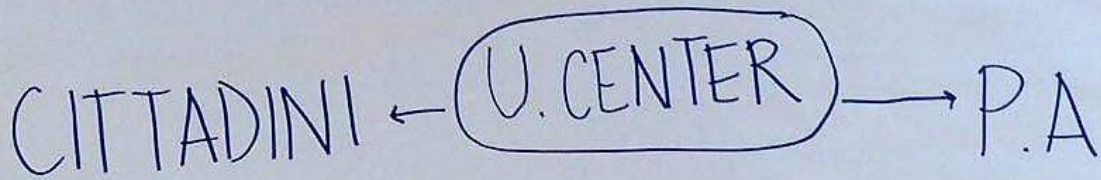 CITTADINI ← U. CENTER → P.A